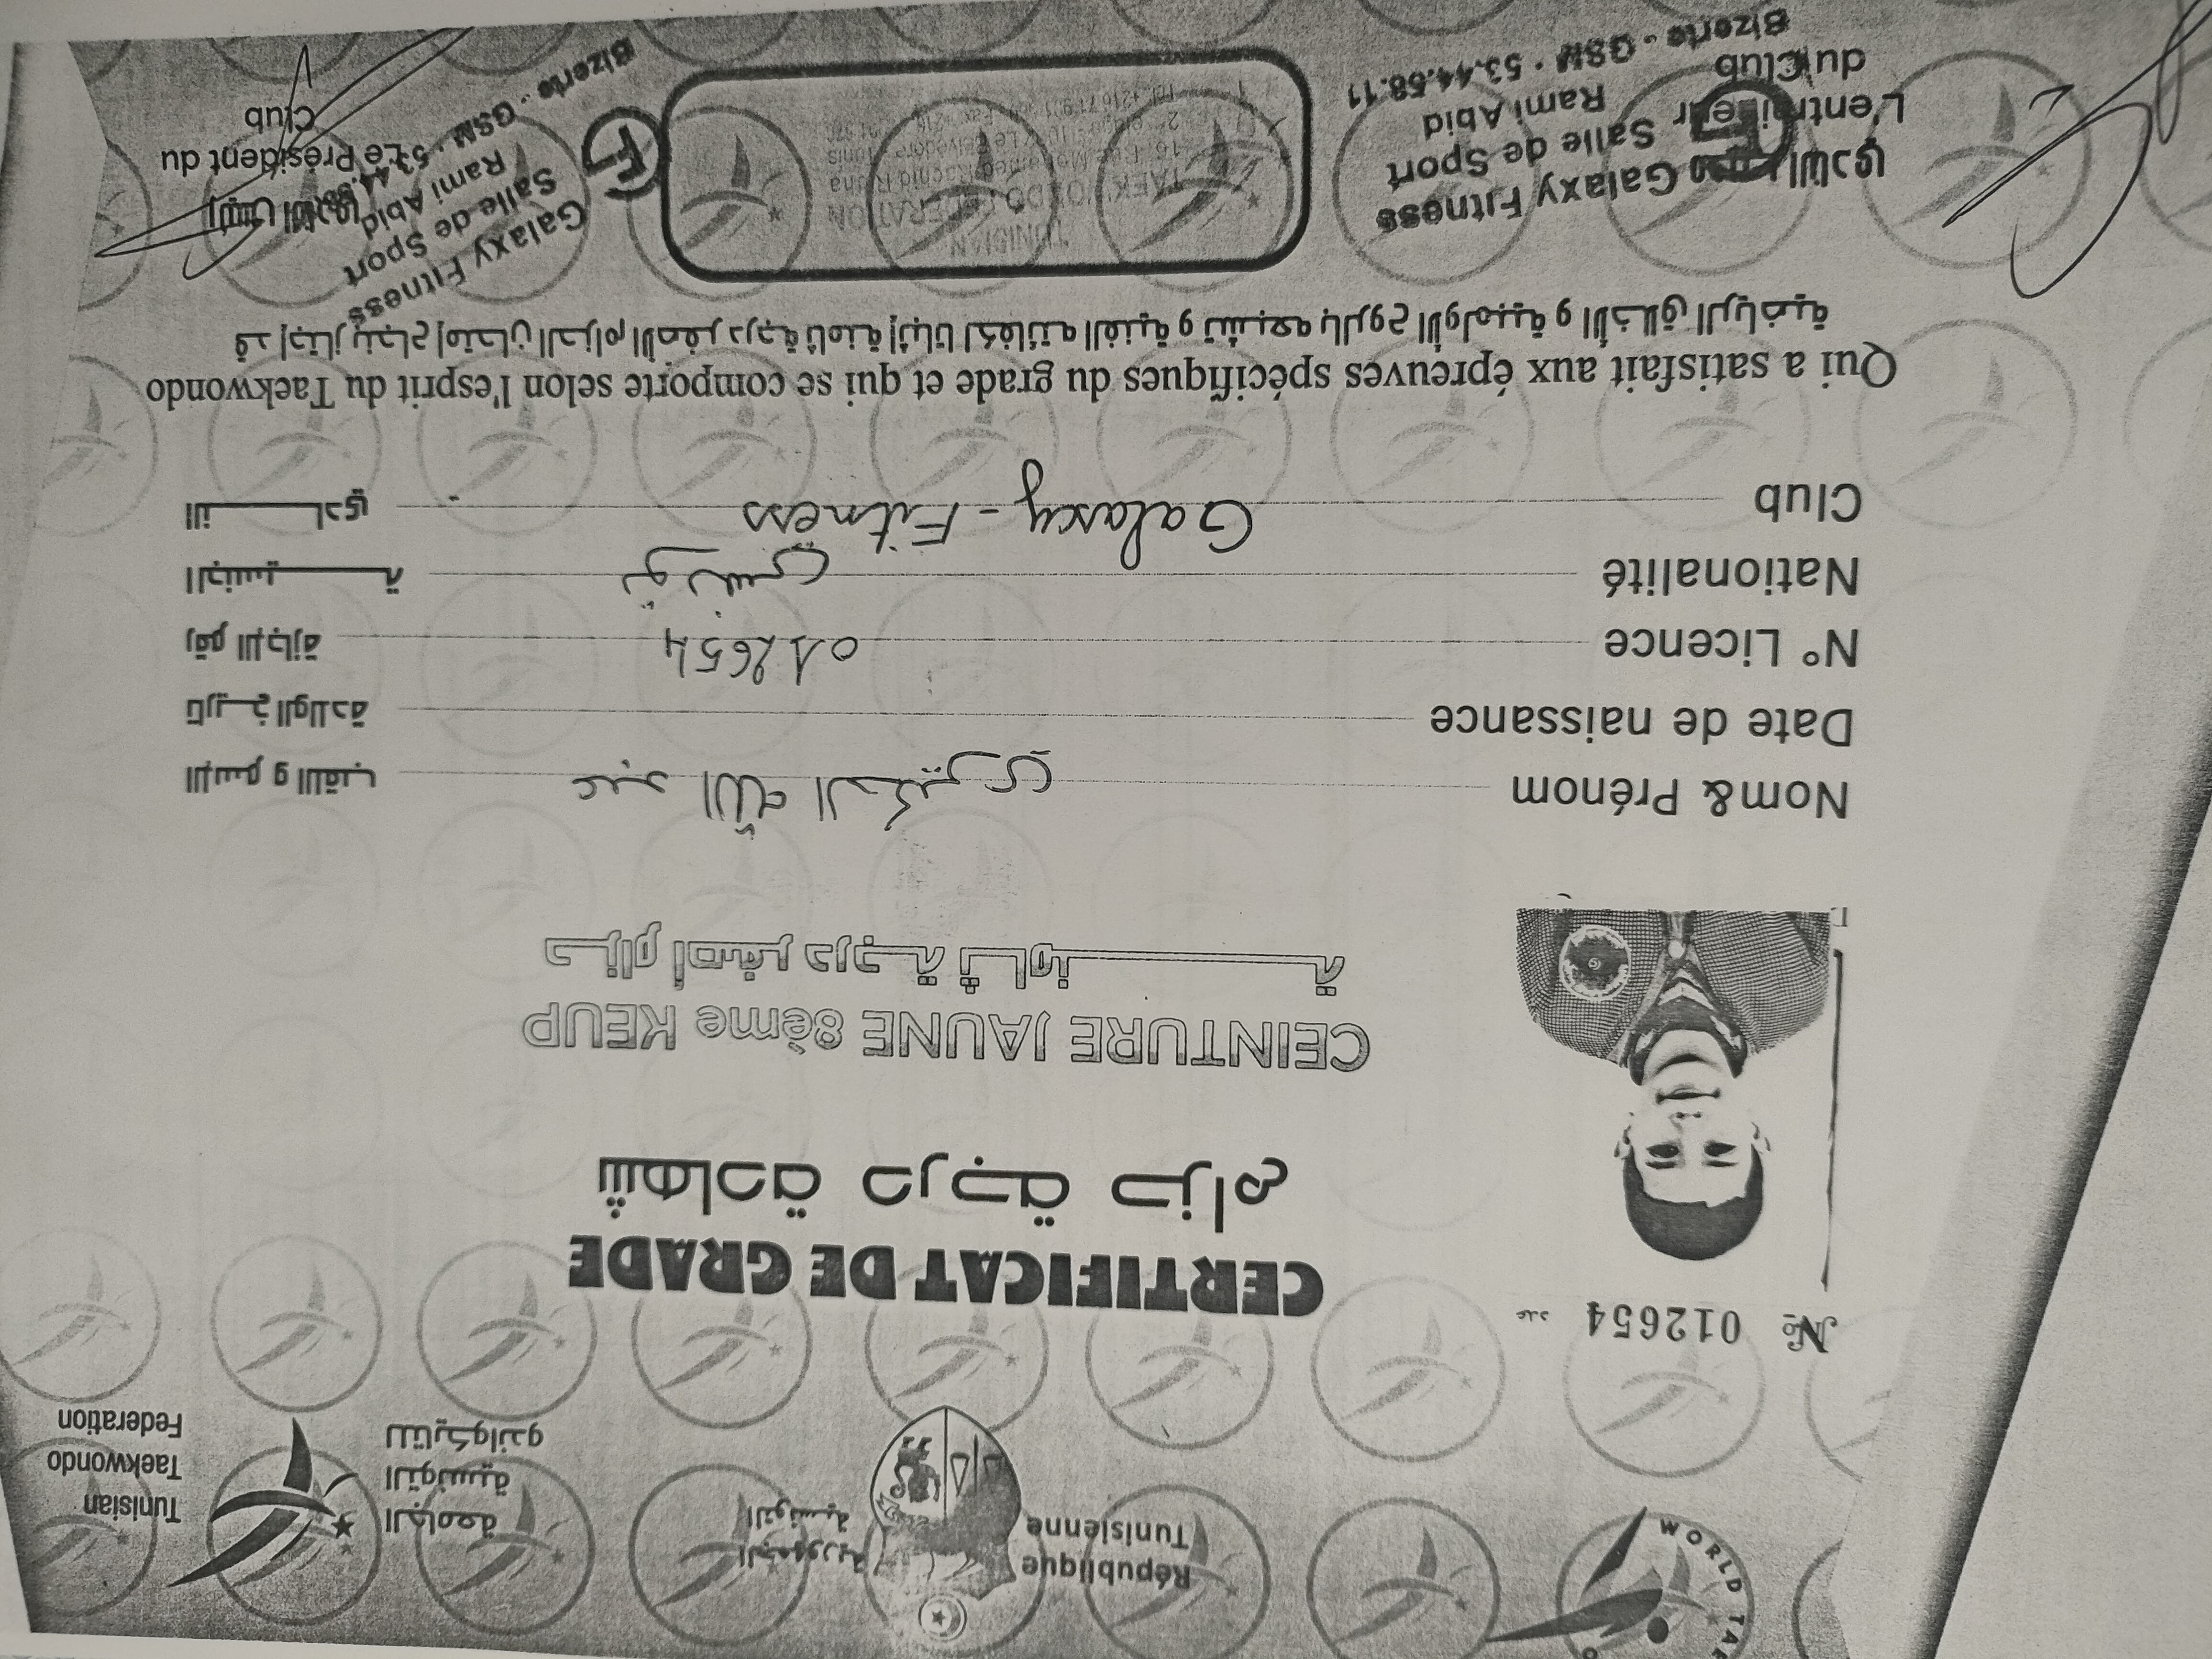 WORLD TAE
République
Tunisienne
الجمهورية
التونسية
الجامعة
التونسية
للتايكواندو
Tunisian
Taekwondo
Federation
№ 012654 عدد
CERTIFICAT DE GRADE
شهادة درجة حزام
CEINTURE JAUNE 8ème KEUP
حزام اصفر درجة ثامنة
Nom& Prénom عبد الله الدكتوري الإسم و اللقب
Date de naissance تاريخ الولادة
N° Licence 012654 رقم الإجازة
Nationalité تونسي الجنسية
Club Galaxy - Fitness النادي
Qui a satisfait aux épreuves spécifiques du grade et qui se comporte selon l'esprit du Taekwondo
قد إجتاز بنجاح إمتحان الحزام الأصفر درجة ثامنة إثباتا لكفائته الفنية و تشبعه بالروح الأولمبية و الأخلاق الرياضية
Galaxy Fitness
Salle de Sport
Rami Abid
Bizerte - GSM : 53.44.58.11
L'entraineur
du Club
TUNISIAN
TAEKWONDO FEDERATION
Galaxy Fitness
Salle de Sport
Rami Abid
Bizerte - GSM : 53.44.58
رئيس النادي
Le Président du
Club